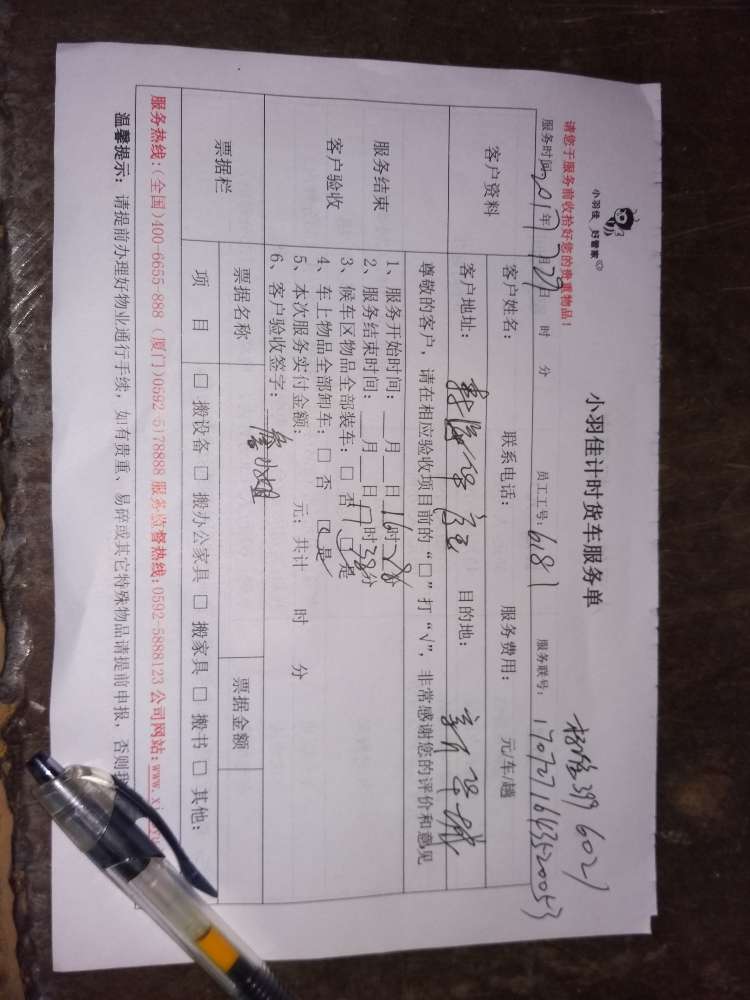 小羽佳 好管家
小羽佳计时货车服务单
请您于服务前收拾好您的贵重物品！
服务时间: 2017年 月29日 时 分 员工工号: 6181 服务联号: 1707271643520053
客户资料
客户姓名： 联系电话： 服务费用： 元/车/趟
客户地址： 目的地：
服务结束
客户验收
尊敬的客户，请在相应验收项目前的“□”打“√”，非常感谢您的评价和意见
1、服务开始时间：__月__日16时28分
2、服务结束时间：__月__日17时38分
3、候车区物品全部装车：□ 否 □是
4、车上物品全部卸车：□ 否 □是
5、本次服务实付金额： 元；共计 时 分
6、客户验收签字：
票据栏
票据名称 票据金额
项 目 □ 搬设备 □ 搬办公家具 □ 搬家具 □ 搬书 □ 其他：
服务热线:(全国)400-6655-888 (厦门)0592-5178888 服务监督热线:0592-5888123 公司网站:www.xi
温馨提示：请提前办理好物业通行手续，如有贵重、易碎或其它特殊物品请提前申报，否则我